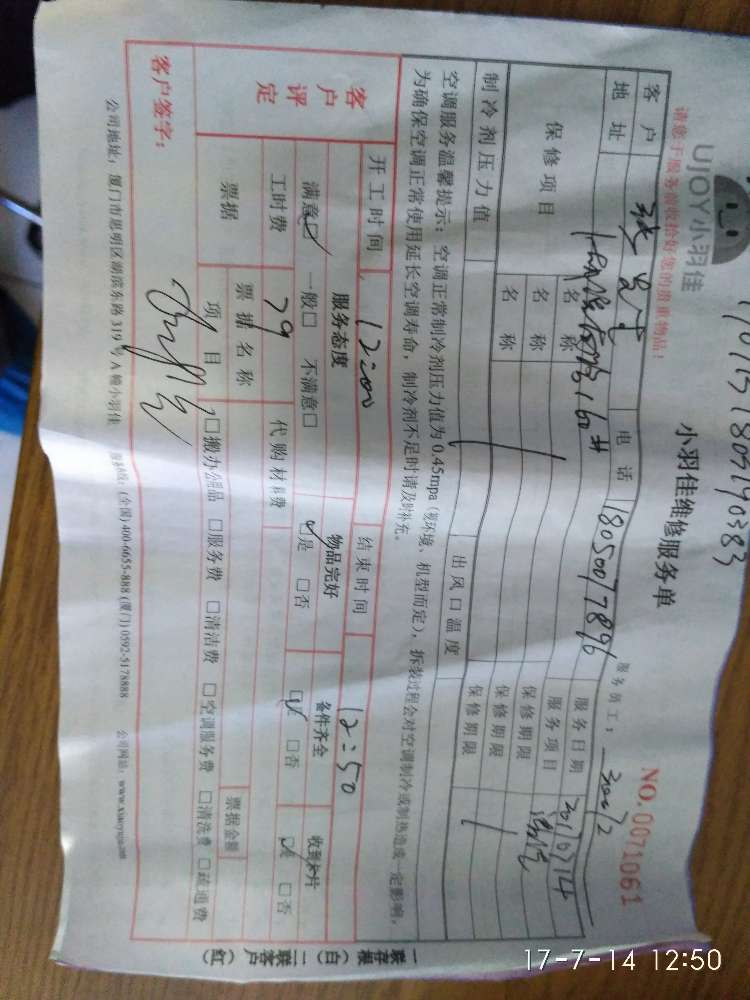 UJOY小羽佳
小羽佳维修服务单
NO.0071061
请您于服务前收拾好您的贵重物品！
服务员工：
客户
电话 18050077896
服务日期 20170714
地址
服务项目
保修项目
名称
保修期限
名称
保修期限
名称
保修期限
制冷剂压力值
出风口温度
空调服务温馨提示：空调正常制冷剂压力值为0.45mpa（视环境、机型而定），拆装过程会对空调制冷或制热造成一定影响，
为确保空调正常使用延长空调寿命，制冷剂不足时请及时补充。
客户评定
开工时间 12:00
结束时间 12:50
服务态度
物品完好
备件齐全
收到卡片
满意☑ 一般□ 不满意□
☑是 □否
☑是 □否
☑是 □否
工时费 79
代购材料费
票据
票据名称
票据金额
项目
□搬办公用品 □服务费 □清洁费 □空调服务费 □清洗费 □疏通费
客户签字：
公司地址：厦门市思明区湖滨东路319号A幢小羽佳
服务热线：(全国) 400-6655-888 (厦门) 0592-5178888
公司网站：www.xiaoyujia.com
一联存根（白）二联客户（红）
17-7-14 12:50